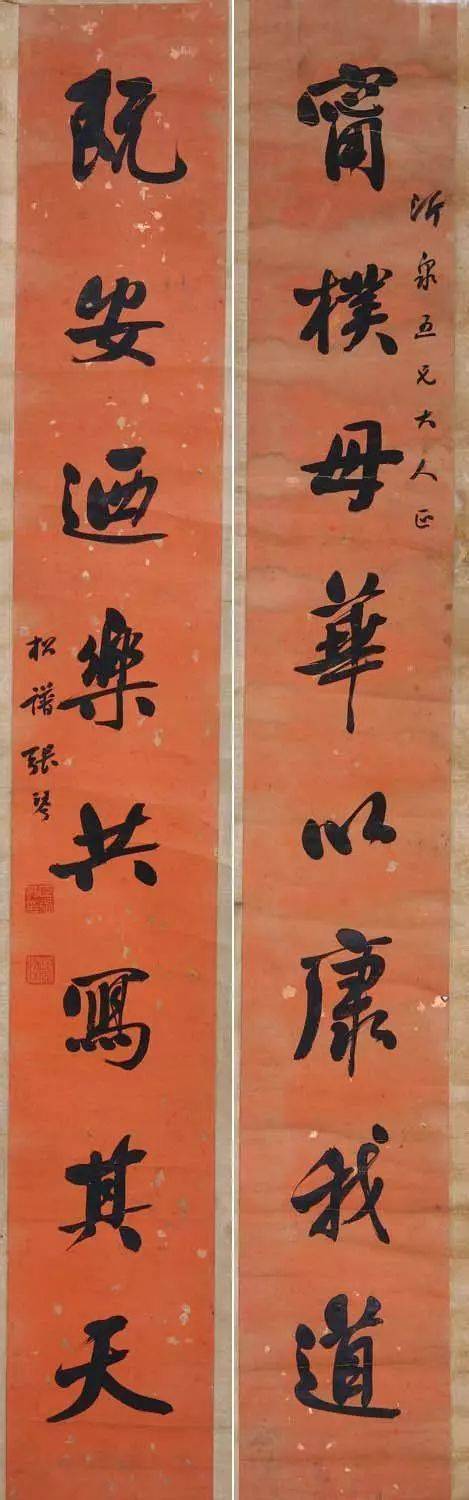 甯樸毋華以康我道
沂泉五兄大人正
既安迺樂共寫其天
松譜張琴